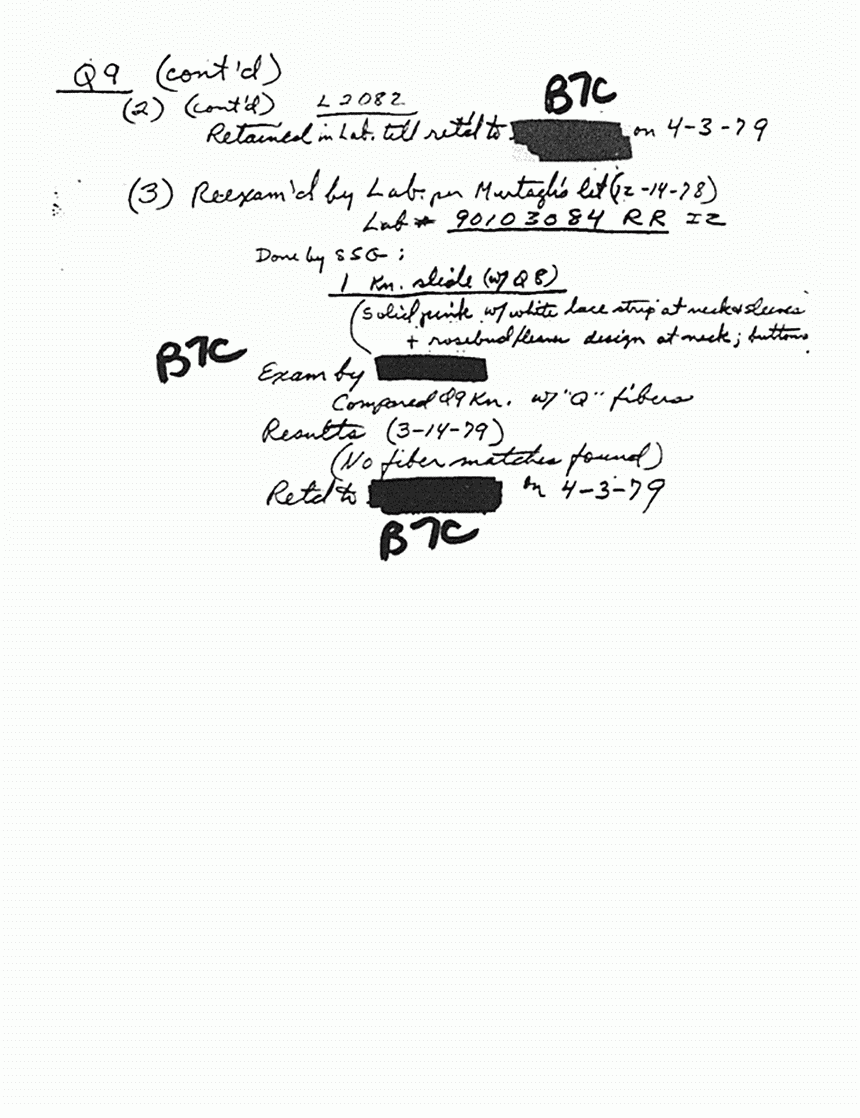 Q9 (cont'd)
B7C
(2) (cont'd) L2082
Retained in Lab. till retd to on 4-3-79
(3) Reexam'd by Lab. per Murtagh's let (12-14-78)
Lab # 90103084 RR IZ
Done by SSG:
1 Kn. slide (w/ Q8)
(solid pink w/ white lace strip at neck & sleeves
+ rosebud design at neck; buttons
B7C
Exam by
Compared Q9 Kn. w/ "Q" fibers
Results (3-14-79)
(No fiber matches found)
Retd to on 4-3-79
B7C